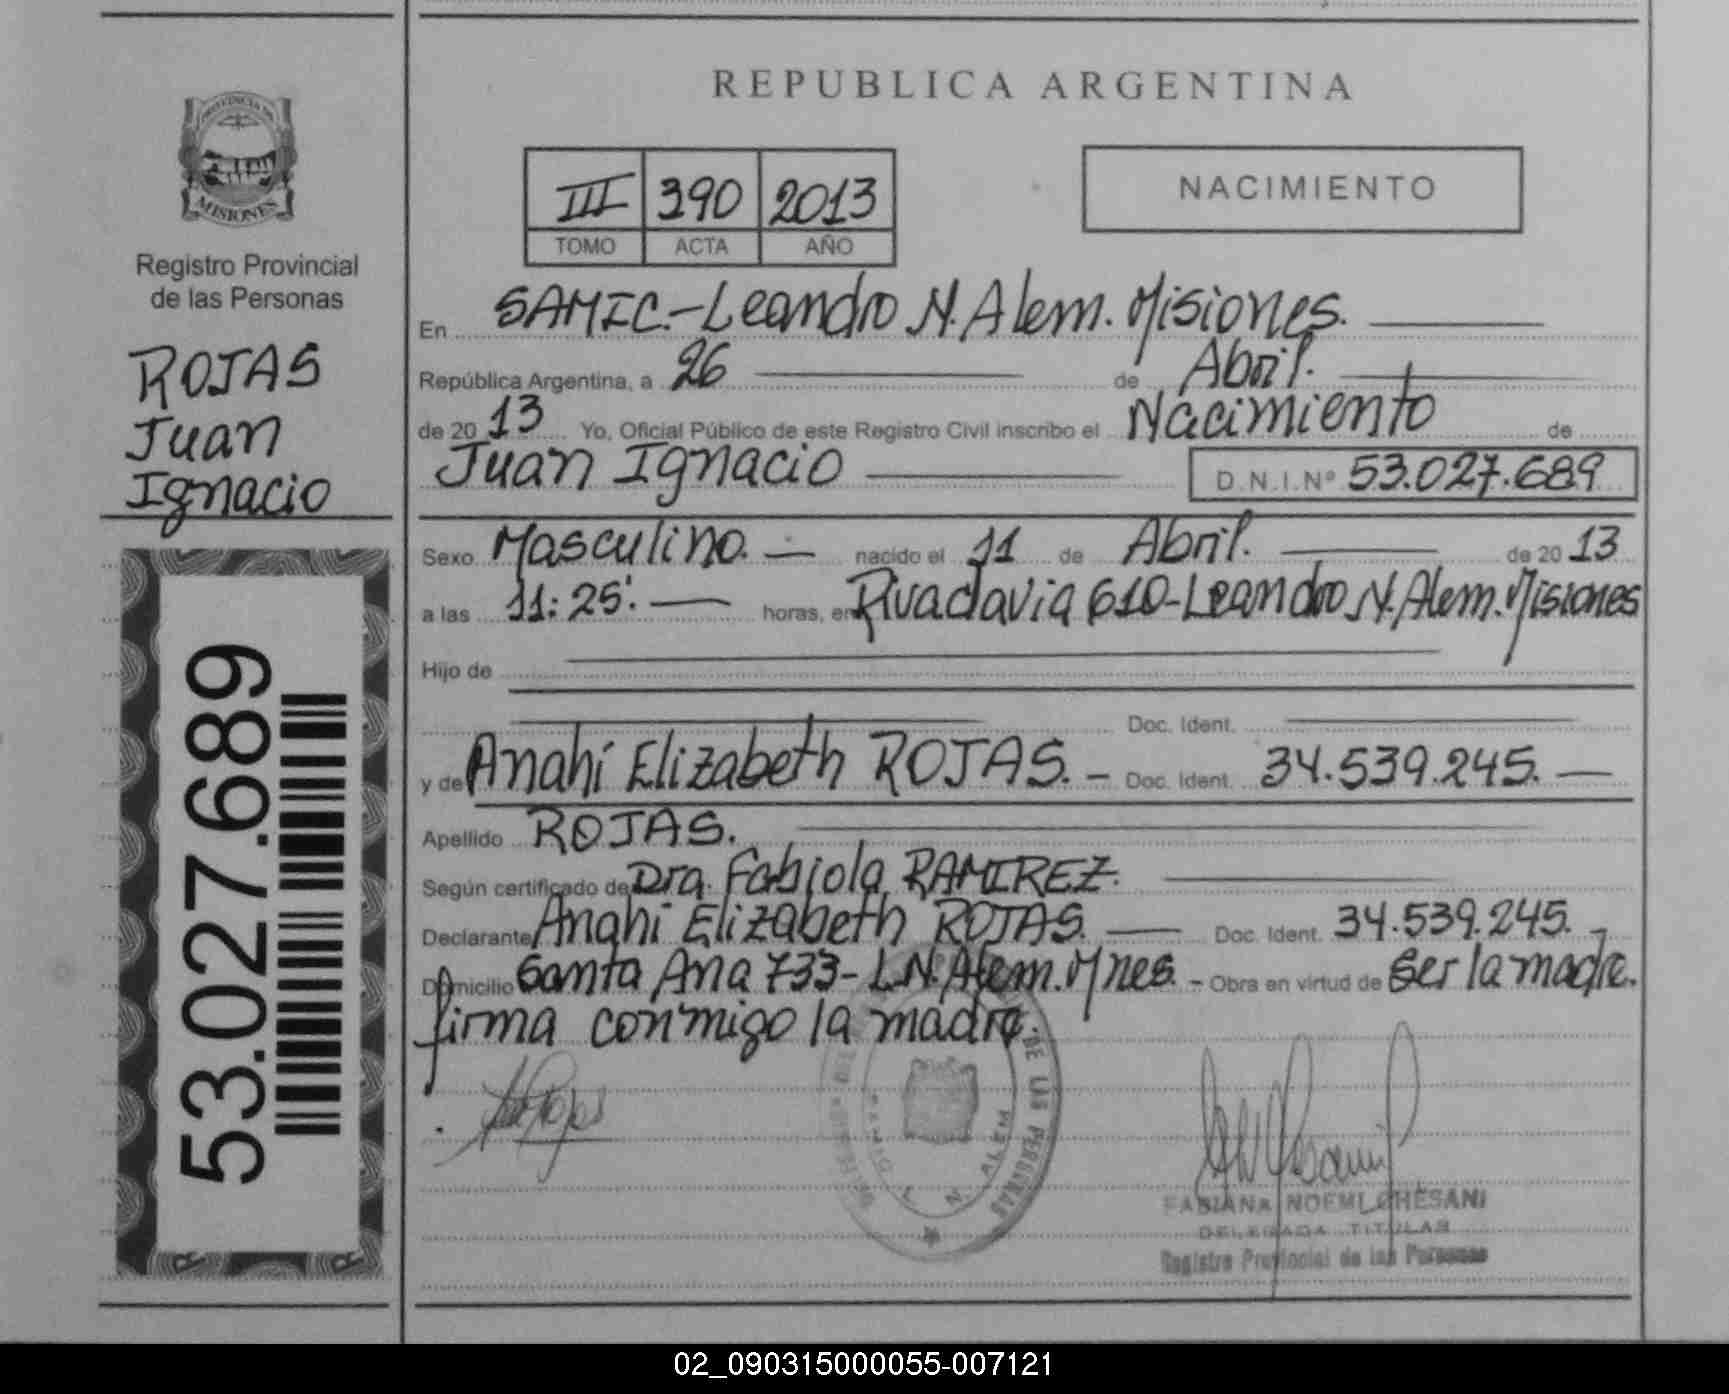 REPUBLICA ARGENTINA
MISIONES
Registro Provincial
de las Personas
ROJAS
Juan
Ignacio
53.027.689
III 390 2013
TOMO ACTA AÑO
NACIMIENTO
En SAMIC.-Leandro N. Alem. Misiones.
República Argentina, a 26 de Abril.
de 20 13 Yo, Oficial Público de este Registro Civil inscribo el Nacimiento de
Juan Ignacio D.N.I.Nº 53.027.689
Sexo Masculino. nacido el 11 de Abril. de 20 13
a las 11:25'. horas, en Rivadavia 610-Leandro N. Alem. Misiones
Hijo de
Doc. Ident.
y de Anahí Elizabeth ROJAS. - Doc. Ident. 34.539.245.
Apellido ROJAS.
Según certificado de Dra. Fabiola RAMIREZ.
Declarante Anahí Elizabeth ROJAS. Doc. Ident. 34.539.245.
Domicilio Santa Ana 733- L.N. Alem. Mnes. - Obra en virtud de Ser la madre.
firma conmigo la madre.
DE LAS PERSONAS
L. N. ALEM
FABIANA NOEMI GHESANI
DELEGADA TITULAR
Registro Provincial de las Personas
02_090315000055-007121